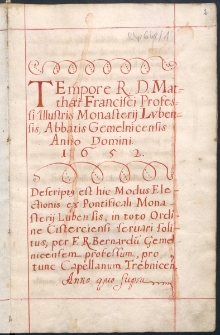 TEmpore R. D. Mat-
thæi Francisci Profes-
si Illustris Monasterij Lvben-
sis, Abbatis Gemelnicensis
Anno Domini.
1652.
Descriptꝯ est hic Modus Ele-
ctionis ex Pontificali Mona-
sterij Lubensis, in toto Ordi-
ne Cisterciensi servari soli-
tus, per F. R. Bernardū Geme-
nicensem professum, pro
tunc Capellanum Trebnicen,
Anno quo supra